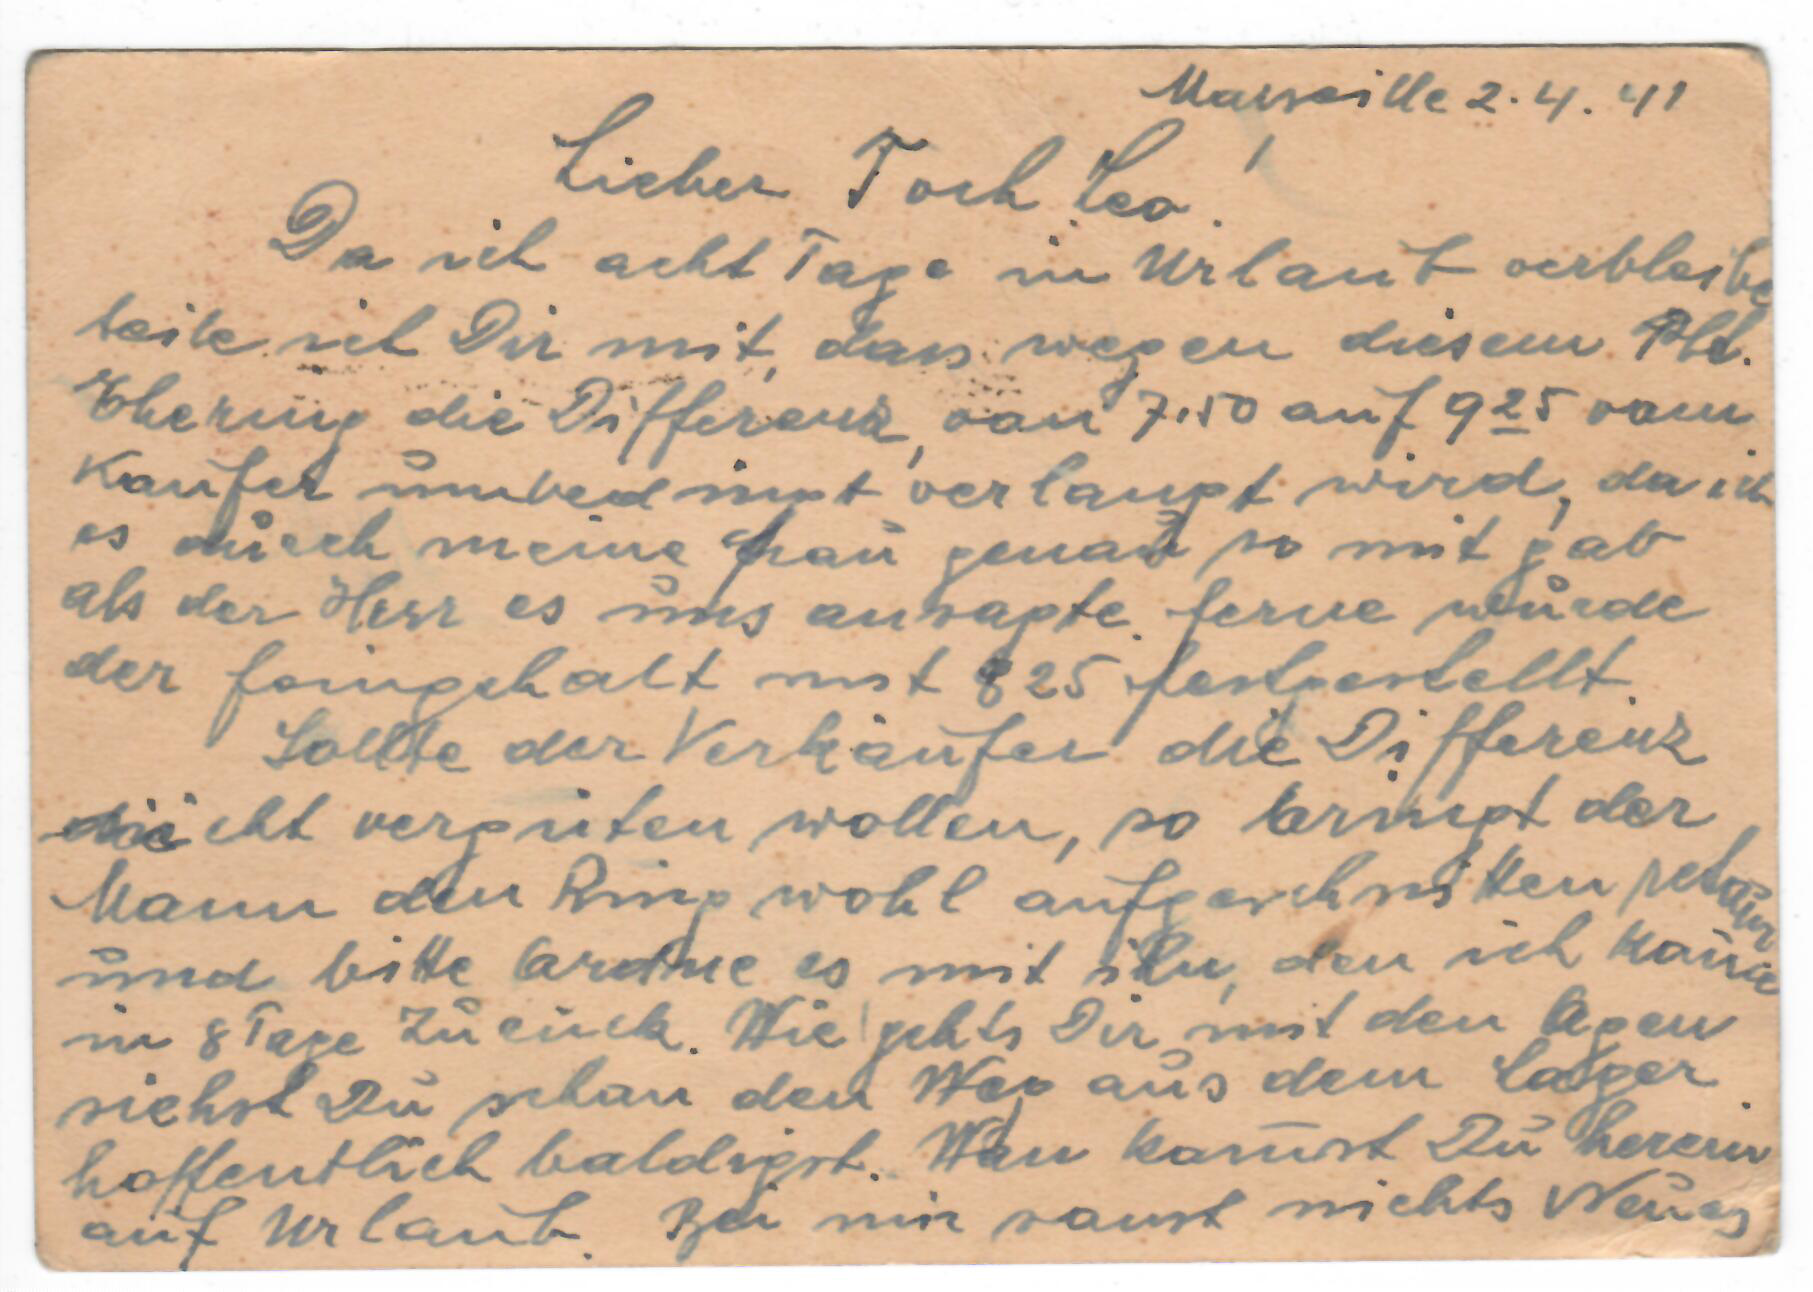 Marseille 2.4.41
Lieber Toch Leo!
Da ich acht Tage in Urlaub verbleibe
teile ich Dir mit, dass wegen diesem
Ehering die Differenz, von 7.50 auf 9 25 vom
Kaufer unbedingt verlangt wird, da ich
es durch meine Frau genau so mit gab
als der Herr es uns ansagte. ferne wurde
der feingehalt mit 825 festgestellt.
Sollte der Verkäufer die Differenz
nicht vergüten wollen, so bringt der
Mann den Ring wohl aufgeschnitten retour
und bitte ordne es mit ihn, den ich kome
in 8 Tage zurück. Wie gehts Dir mit den Agen
siehst Du schon den Weg aus dem Lager
hoffentlich baldigst. Wan komst Du herein
auf Urlaub. Bei mir sonst nichts Neues